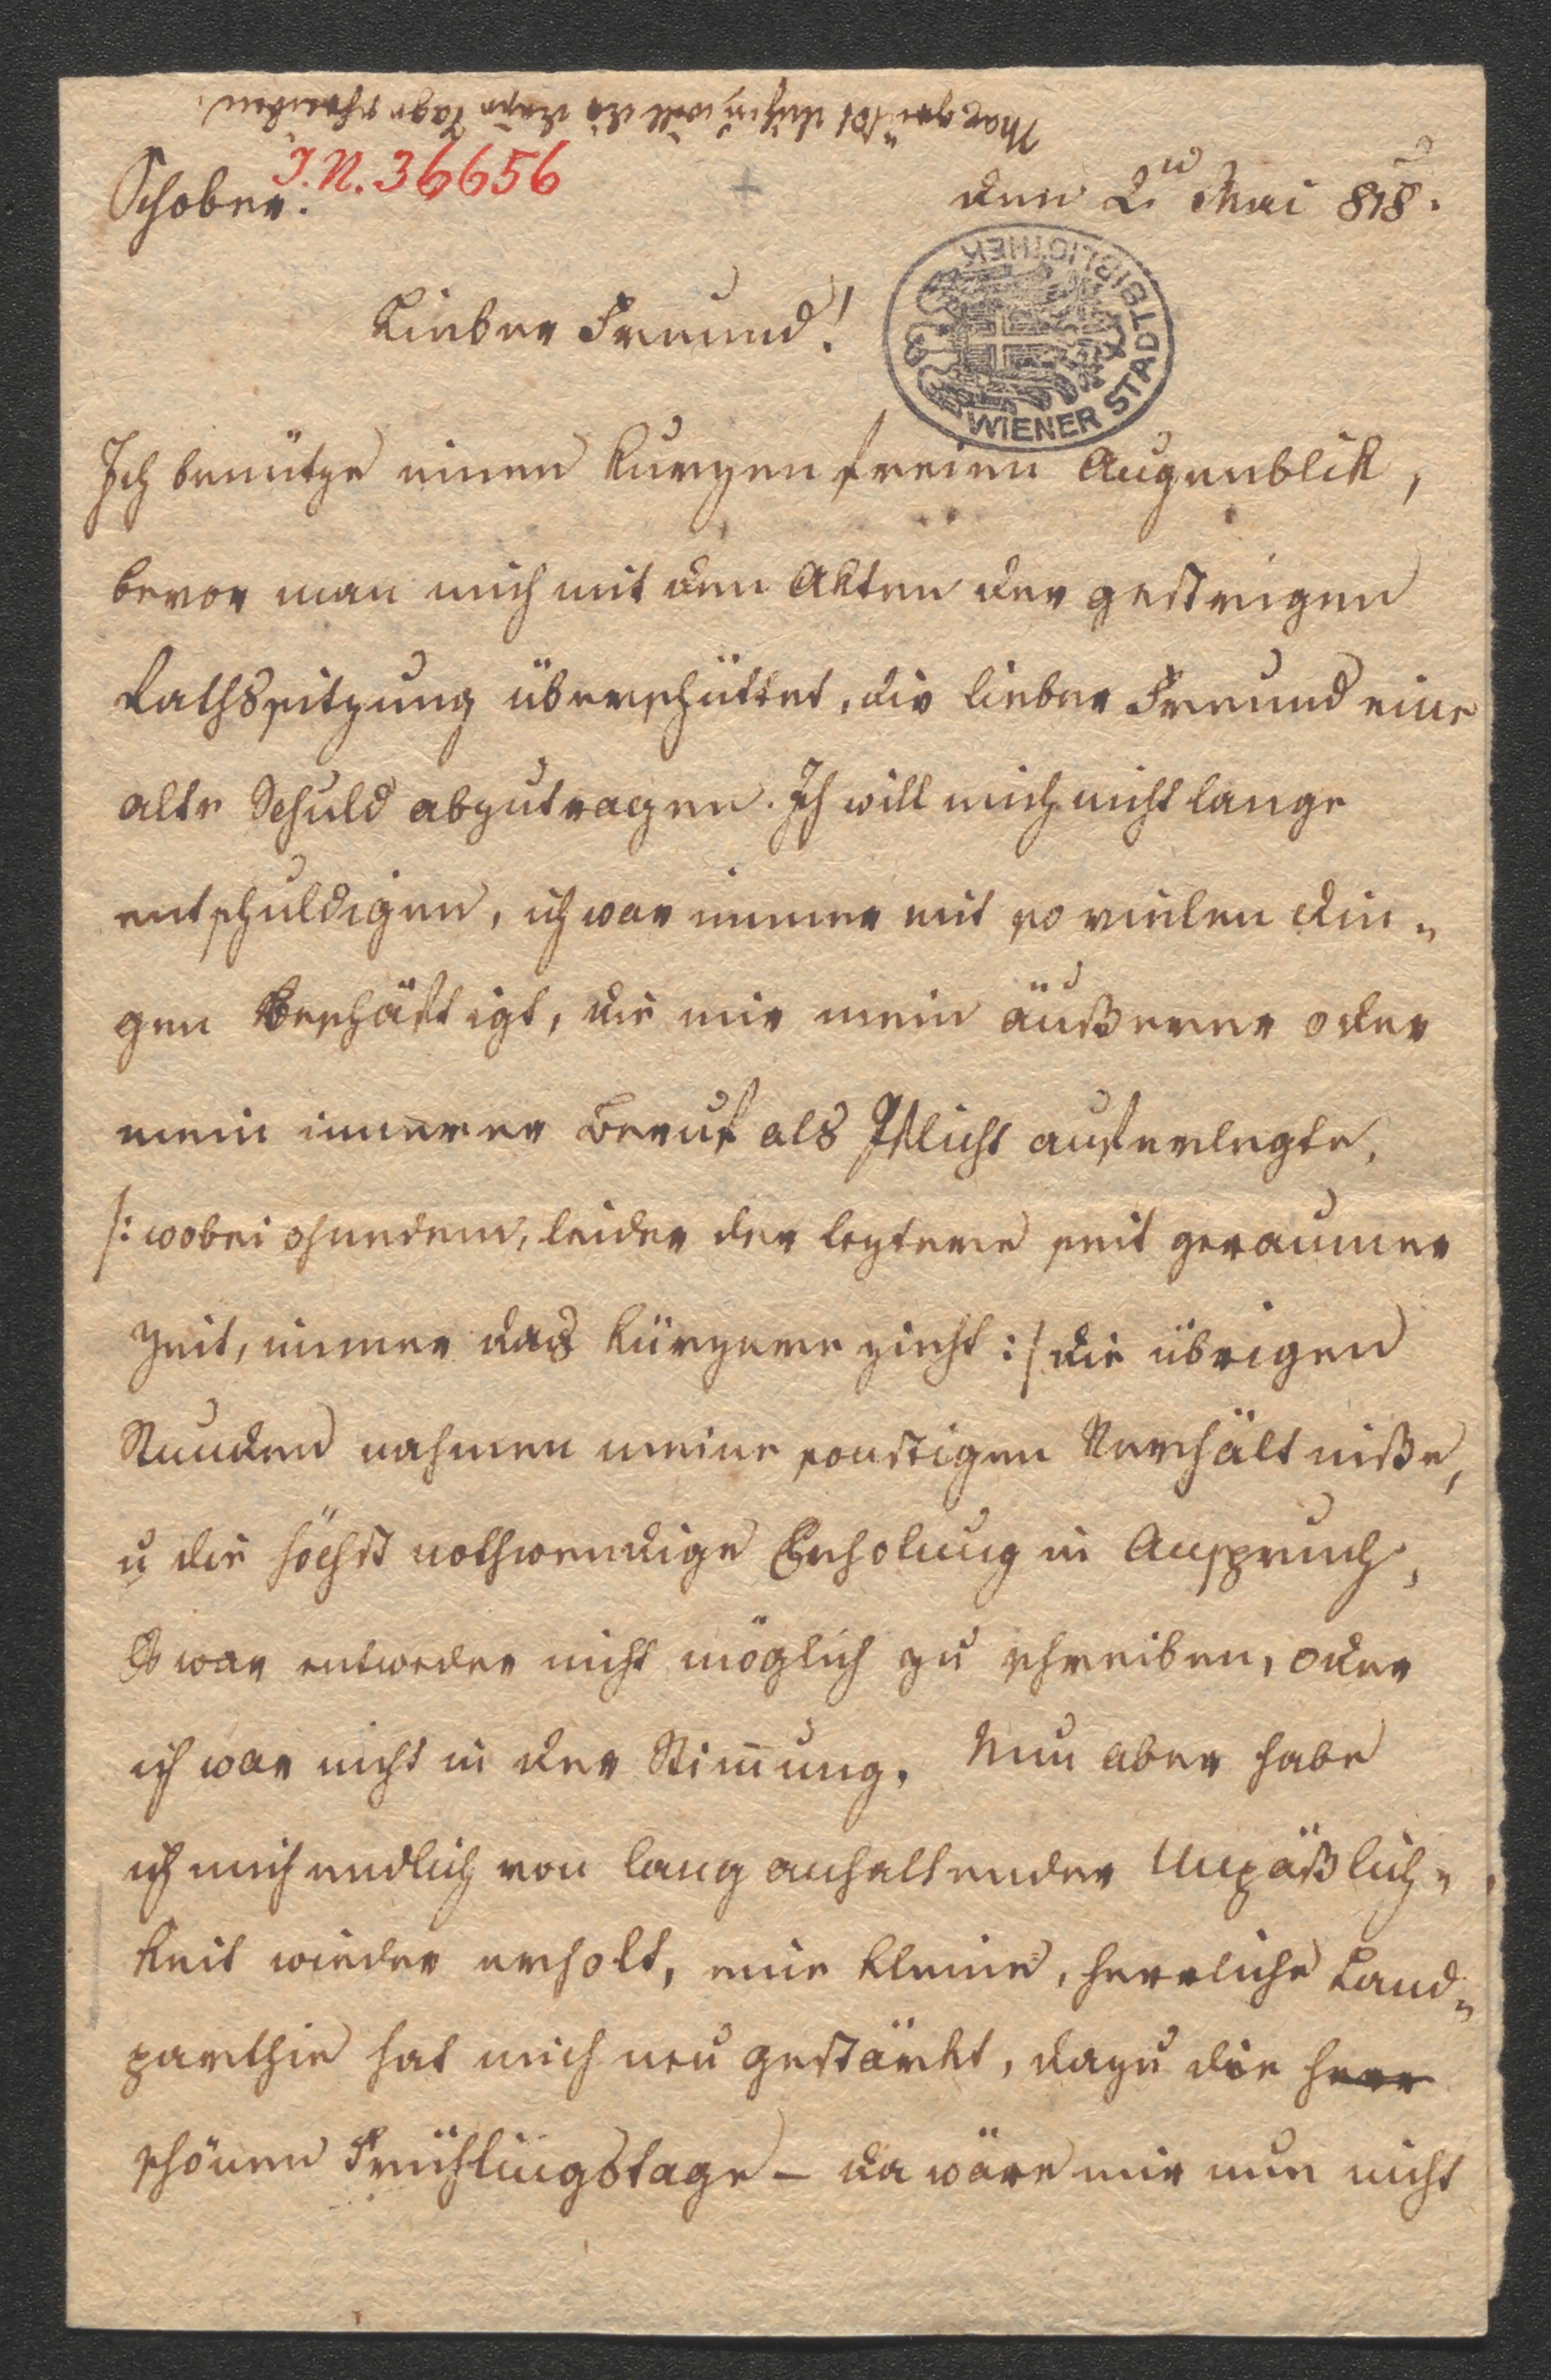 Max grüßt dich u will dir dieser Tage schreiben.
J. N. 36656
Schober.
den 2n Mai 818.
WIENER STADTBIBLIOTHEK
Lieber Freund!
Ich benütze einen kurzen freien Augenblick,
bevor man mich mit den Akten der gestrigen
Rathssitzung überschüttet, dir lieber Freund eine
alte Schuld abzutragen. Ich will mich nicht lange
entschuldigen, ich war immer mit so vielen Din„
gen beschäftigt, die mir mein äußerer oder
mein innerer Beruf als Pflicht auferlegte,
/: wobei ohnedem, leider der leztere seit geraumer
Zeit, immer das kürzere zieht :/ die übrigen
Stunden nahmen meine sonstigen Verhältniße,
u die höchst nothwendige Erholung in Anspruch,
Es war entweder nicht möglich zu schreiben, oder
ich war nicht in der Stim̄ung. Nun aber habe
ich mich endlich von lang anhaltender Unpäßlich„
keit wieder erholt, eine kleine, herrliche Land„
parthie hat mich neu gestärkt, dazu die herr
schönen Frühlingstage – da wäre mir nun nicht